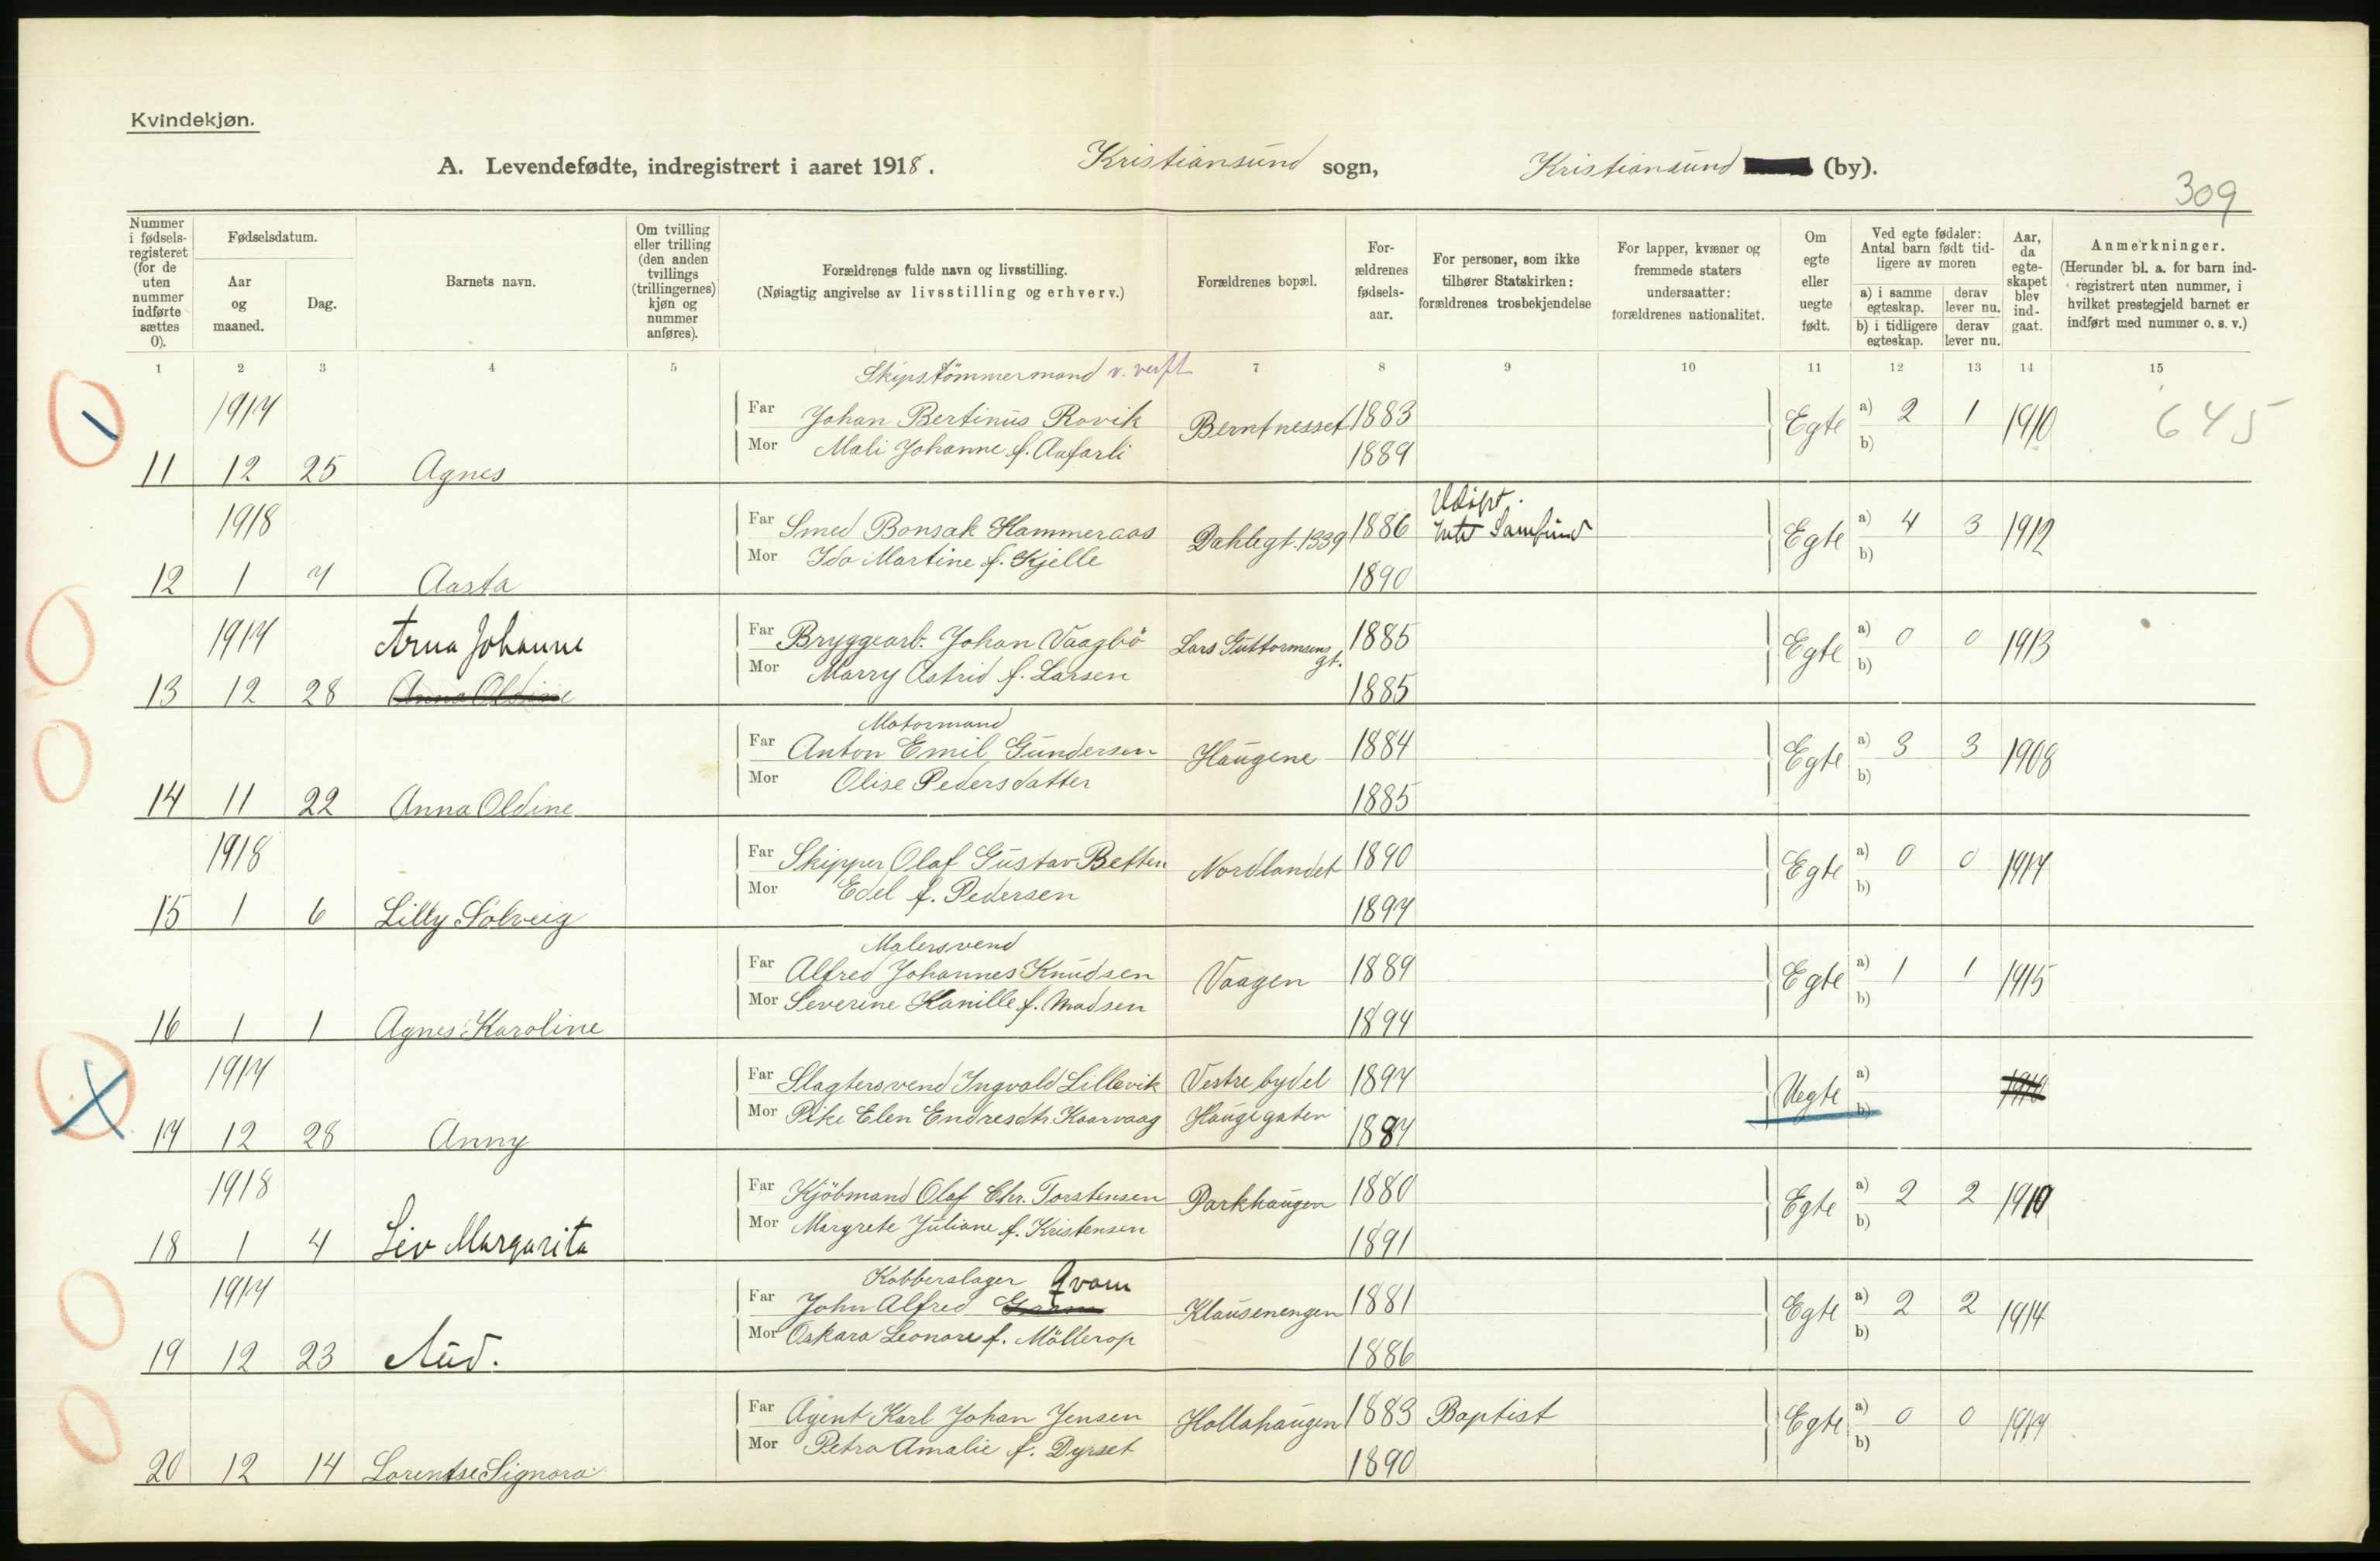 Kvindekjøn.
A. Levendefødte, indregistrert i aaret 1918. Kristiansund sogn, Kristiansund (by).
309
Nummer i fødsels-registeret (for de uten nummer indførte sættes 0).
Fødselsdatum.
Aar og maaned.
Dag.
Barnets navn.
Om tvilling eller trilling (den anden tvillings (trillingernes) kjøn og nummer anføres).
Forældrenes fulde navn og livsstilling.
(Nøiagtig angivelse av livsstilling og erhverv.)
Forældrenes bopæl.
For-ældrenes fødsels-aar.
For personer, som ikke tilhører Statskirken: forældrenes trosbekjendelse
For lapper, kvæner og fremmede staters undersaatter: forældrenes nationalitet.
Om egte eller uegte født.
Ved egte fødsler: Antal barn født tid-ligere av moren
a) i samme egteskap.
derav lever nu.
b) i tidligere egteskap.
derav lever nu.
Aar, da egte-skapet blev ind-gaat.
Anmerkninger.
(Herunder bl. a. for barn ind-registrert uten nummer, i hvilket prestegjeld barnet er indført med nummer o. s. v.)
1 2 3 4 5 7 8 9 10 11 12 13 14 15
Skipstömmermand v. verft
1917 Far Johan Bertinus Rovik Berntnesset 1883 Egte a) 2 1 1910 645
Mor Mali Johanne f. Aafarli 1889 b)
11 12 25 Agnes
1918 Far Smed Bonsak Hammeraas Dahlegt. 1339 1886 Samfund Egte a) 4 3 1912
Mor Ida Martine f. Kjelle 1890 b)
12 1 7 Aasta
1917 Arna Johanne Far Bryggearb. Johan Vaagbö Lars Guttormsens gt. 1885 Egte a) 0 0 1913
Mor Marry Astrid f. Larsen 1885 b)
13 12 28 Anna Oldine
Motormand
Far Anton Emil Gundersen Haugene 1884 Egte a) 3 3 1908
Mor Olise Pedersdatter 1885 b)
14 11 22 Anna Oldine
1918 Far Skipper Olaf Gustav Betten Nordlandet 1890 Egte a) 0 0 1917
Mor Edel f. Pedersen 1897 b)
15 1 6 Lilly Solveig
Malersvend
Far Alfred Johannes Knudsen Vaagen 1889 Egte a) 1 1 1915
Mor Severine Kanille f. Madsen 1894 b)
16 1 1 Agnes Karoline
1917 Far Slagtersvend Ingvald Lillevik Vestre bydel 1897 Uegte a) 1910
Mor Pike Elen Endresdtr. Kaarvaag Haugegaten 1887 b)
17 12 28 Anny
1918 Far Kjöbmand Olaf Chr. Torstensen Parkhaugen 1880 Egte a) 2 2 1910
Mor Margrete Juliane f. Kristensen 1891 b)
18 1 4 Liv Margarita
Kobberslager Qvam
1917 Far John Alfred Klausenengen 1881 Egte a) 2 2 1914
Mor Oskara Leonore f. Möllerop 1886 b)
19 12 23 Aud.
Far Agent Karl Johan Jensen Hollahaugen 1883 Baptist Egte a) 0 0 1917
Mor Petra Amalie f. Dyrset 1890 b)
20 12 14 Lorentse Signora